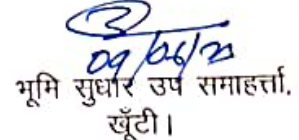 09/06/20
भूमि सुधार उप समाहर्त्ता,
खूँटी।